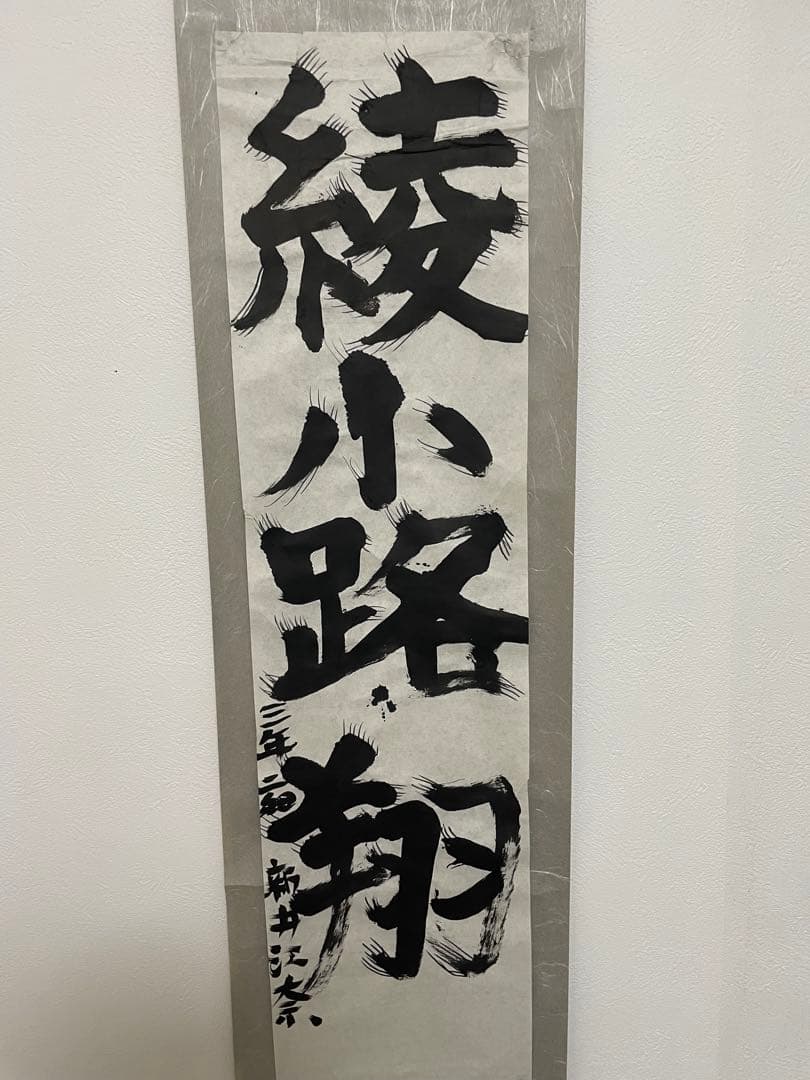 綾小路翔
三年二組 新井江大示